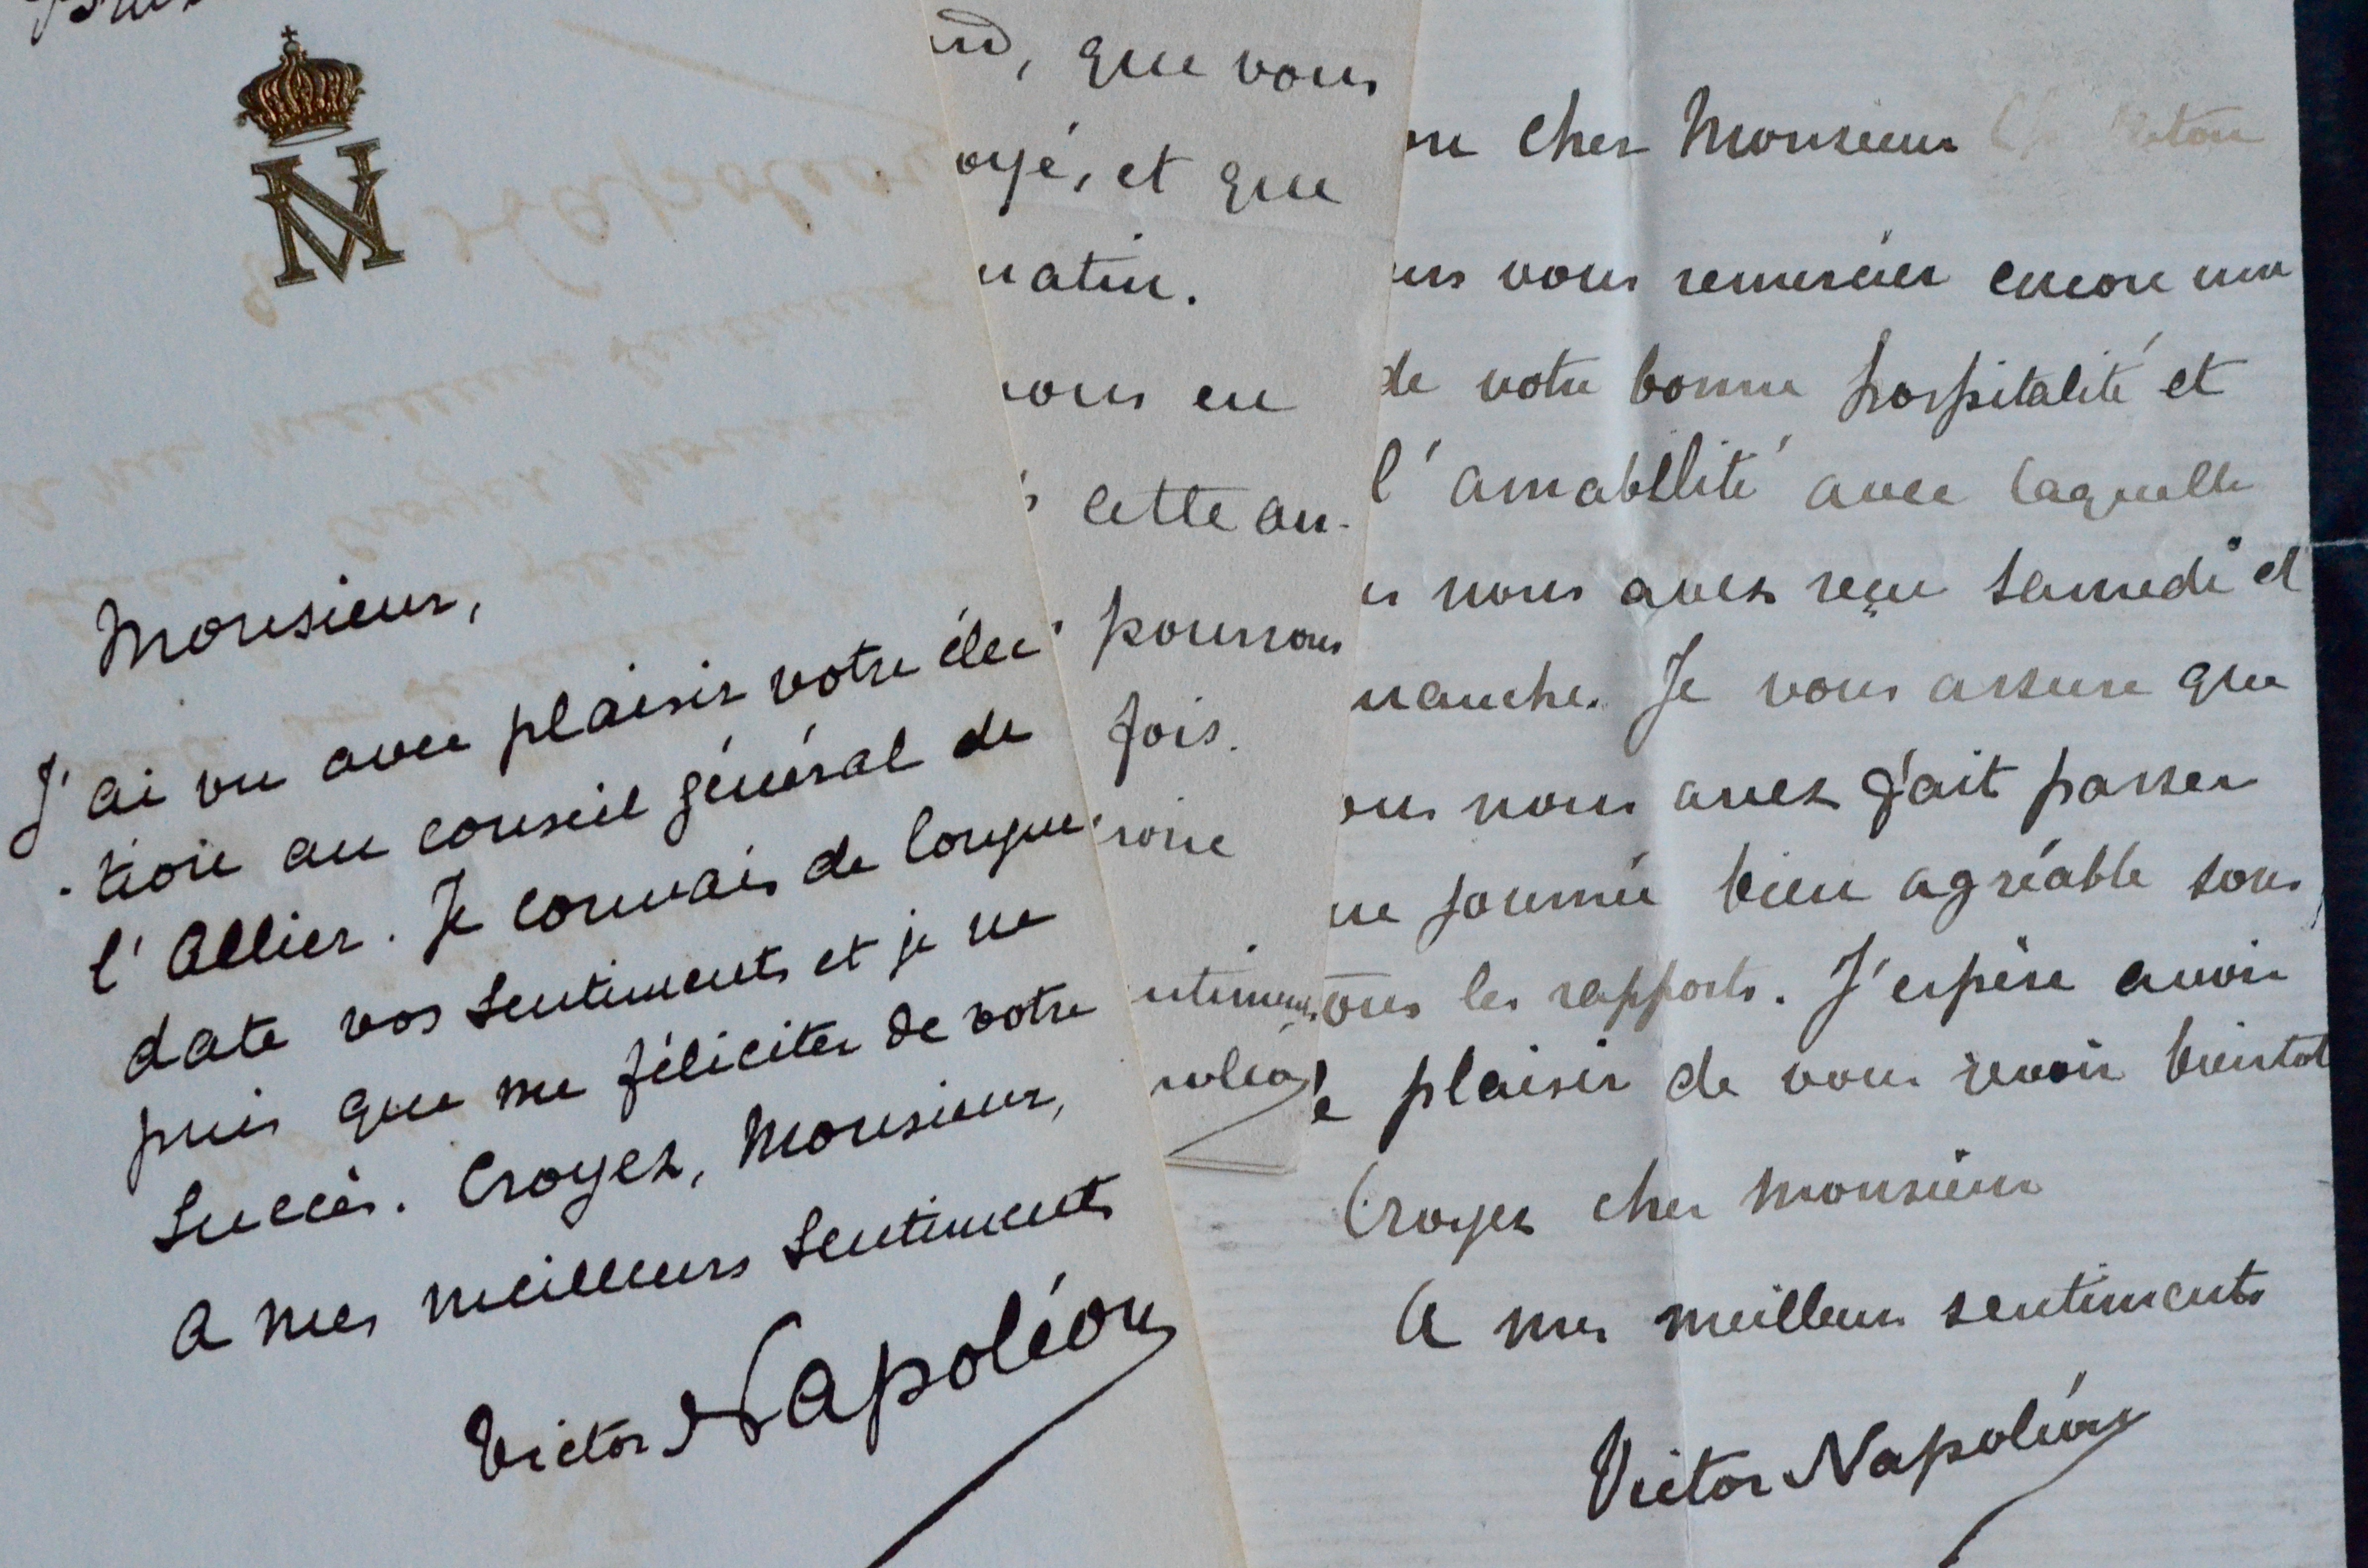 Monsieur,
J'ai vu avec plaisir votre élec
-tion au conseil général de
l'Allier. Je connais de longue
date vos sentiments et je ne
puis que me féliciter de votre
succès. Croyez, Monsieur,
A mes meilleurs sentiments
Victor Napoléon
, que vous
oyé, et que
matin.
vous en
cette au-
pourrons
fois.
Cher Monsieur
vous remercier encore une
de votre bonne hospitalité et
l'amabilité avec laquelle
nous avez reçu samedi et
manche. Je vous assure que
nous avez fait passer
ne journée bien agréable sous
tous les rapports. J'espère avoir
le plaisir de vous revoir bientot
Croyez cher Monsieur
A mes meilleurs sentiments
Victor Napoléon